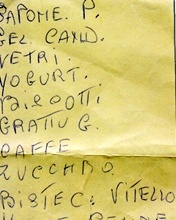 SAPONE. P.
GEL. CAMD.
VETRI.
YOGURT.
BISCOTTI.
GRATTU G.
CAFFE
ZUCCHRO.
BISTEC: VITELLO